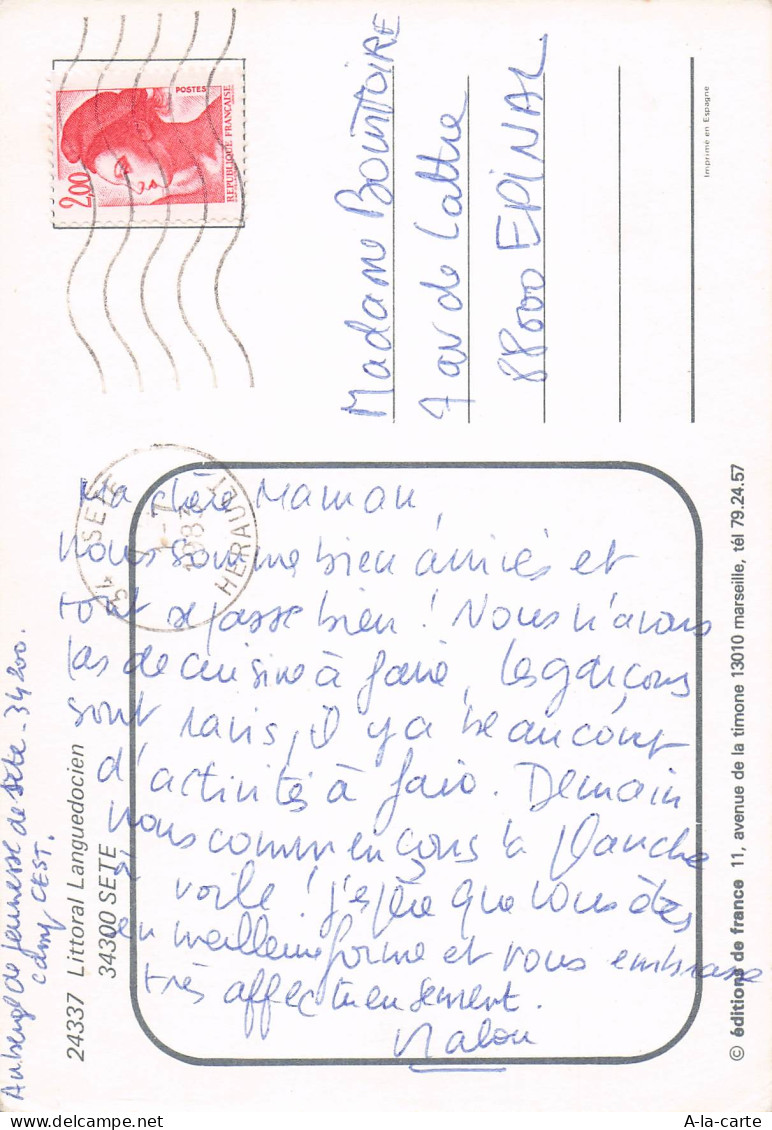 POSTES
2,00
REPUBLIQUE FRANÇAISE
Madame
7 av de Lattre
88000 EPINAL
Imprimé en Espagne
34 SETE
1-7
HERAULT
Ma chère Maman,
nous somme bien arrivés et
tout se passe bien ! Nous n'avons
pas de cuisine à faire, les garçons
sont ravis, il y a beaucoup
d'activités à faire. Demain
nous commençons la planche
à voile ! j'espère que vous êtes
en meilleure forme et vous embrasse
très affectueusement.
Malou
Auberge de jeunesse de Sète - 34200.
camp CEST.
24337 Littoral Languedocien
34300 SETE
© éditions de france 11, avenue de la timone 13010 marseille, tél 79.24.57
A-la-carte